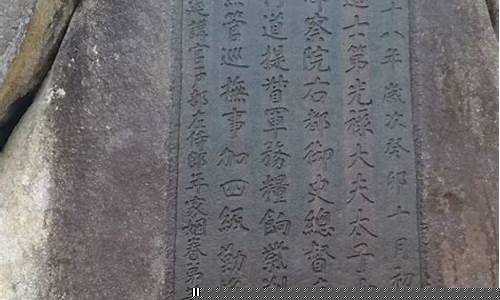 十八年歲次癸卯十月初
進士第光祿大夫太子
察院右都御史總督
道提督軍務糧餉
管巡撫事加四級勒
講官戶部左侍郎年家姻眷弟